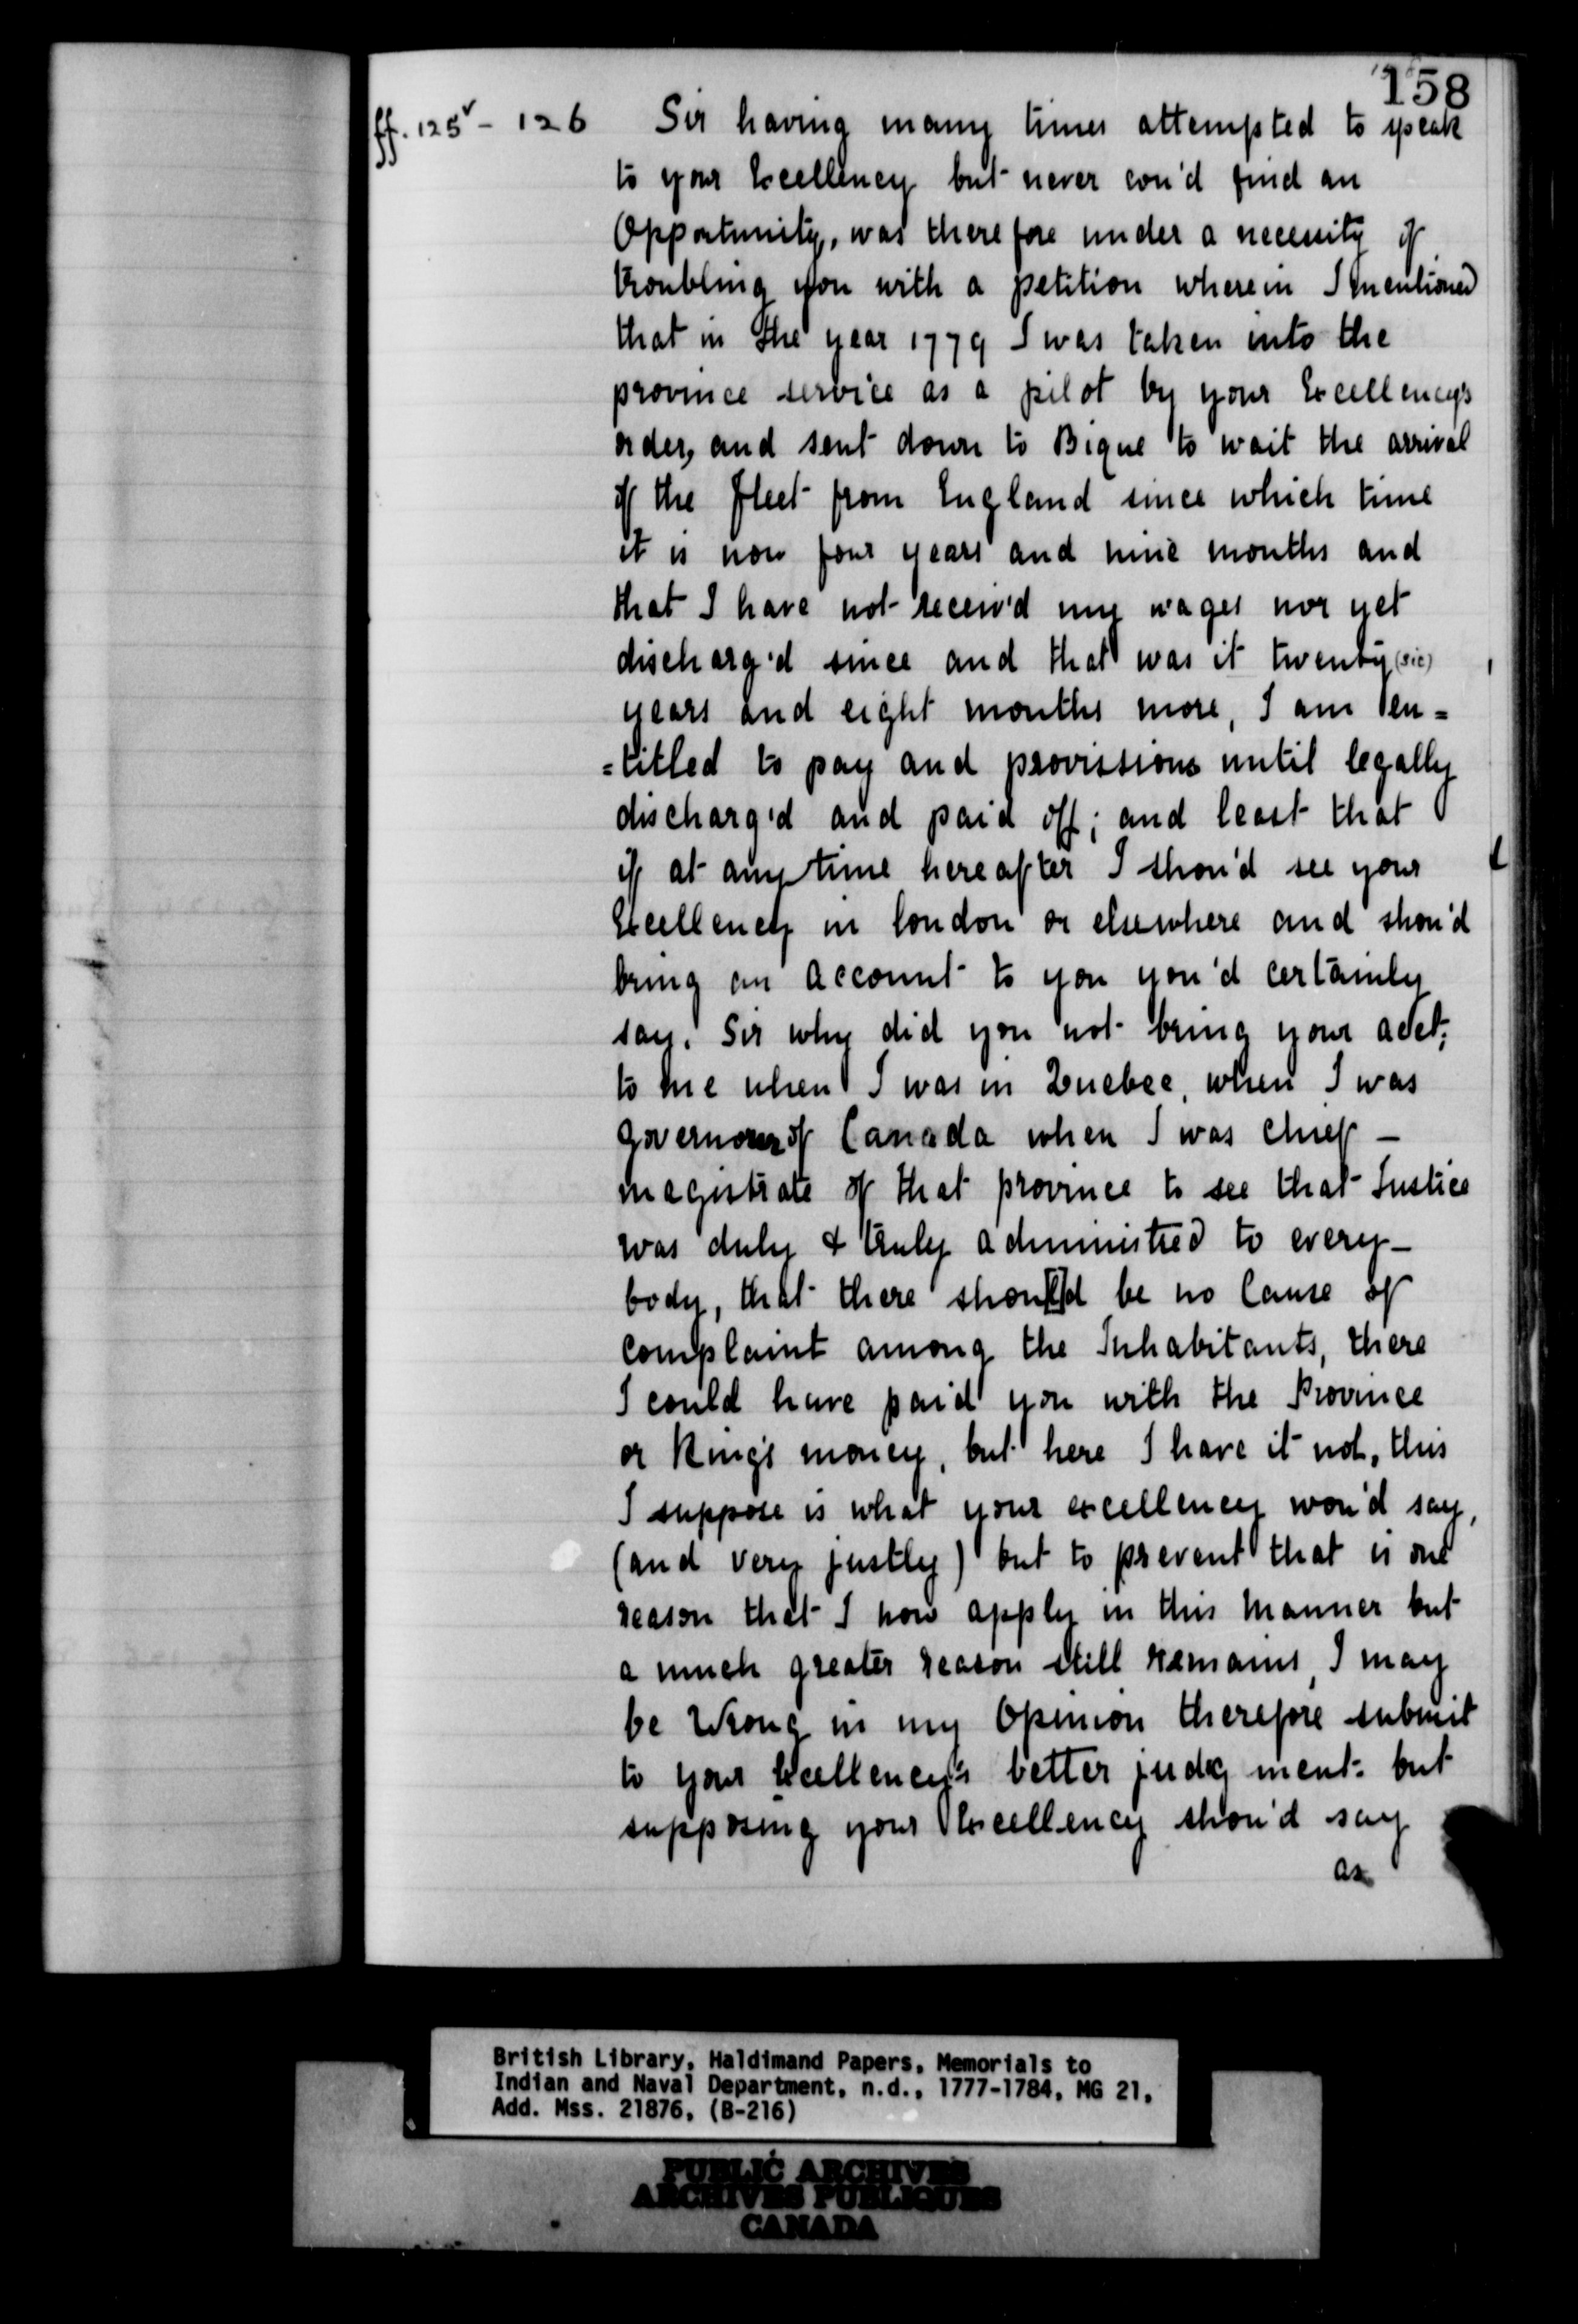 158
ff. 125v - 126 Sir having many times attempted to speak
to your Excellency but never cou'd find an
Opportunity, was therefore under a necessity of
troubling you with a petition wherein I mentioned
that in the year 1779 I was taken into the
province service as a pilot by your Excellency's
order, and sent down to Bique to wait the arrival
of the fleet from England since which time
it is now four years and nine months and
that I have not receiv'd my wages nor yet
discharg'd since and that was it twenty (sic)
years and eight months more, I am en=
=titled to pay and provissions until legally
discharg'd and paid off; and least that
if at any time hereafter I shou'd see your
Excellency in london or elsewhere and shou'd
bring an account to you you'd certainly
say. Sir why did you not bring your acct;
to me when I was in Quebec, when I was
Governour of Canada when I was chief -
magistrate of that province to see that Justice
was duly & truly administred to every-
body, that there shou[l]d be no Cause of
complaint among the Inhabitants, there
I could have paid you with the Province
or King's money, but here I have it not, this
I suppose is what your excellency wou'd say,
(and very justly) but to prevent that is one
reason that I now apply in this manner but
a much greater reason still remains, I may
be Wrong in my Opinion therefore submit
to your Excellency's better judgment: but
supposing your Excellency shou'd say
as
British Library, Haldimand Papers, Memorials to
Indian and Naval Department, n.d., 1777-1784, MG 21,
Add. Mss. 21876, (B-216)
PUBLIC ARCHIVES
ARCHIVES PUBLIQUES
CANADA